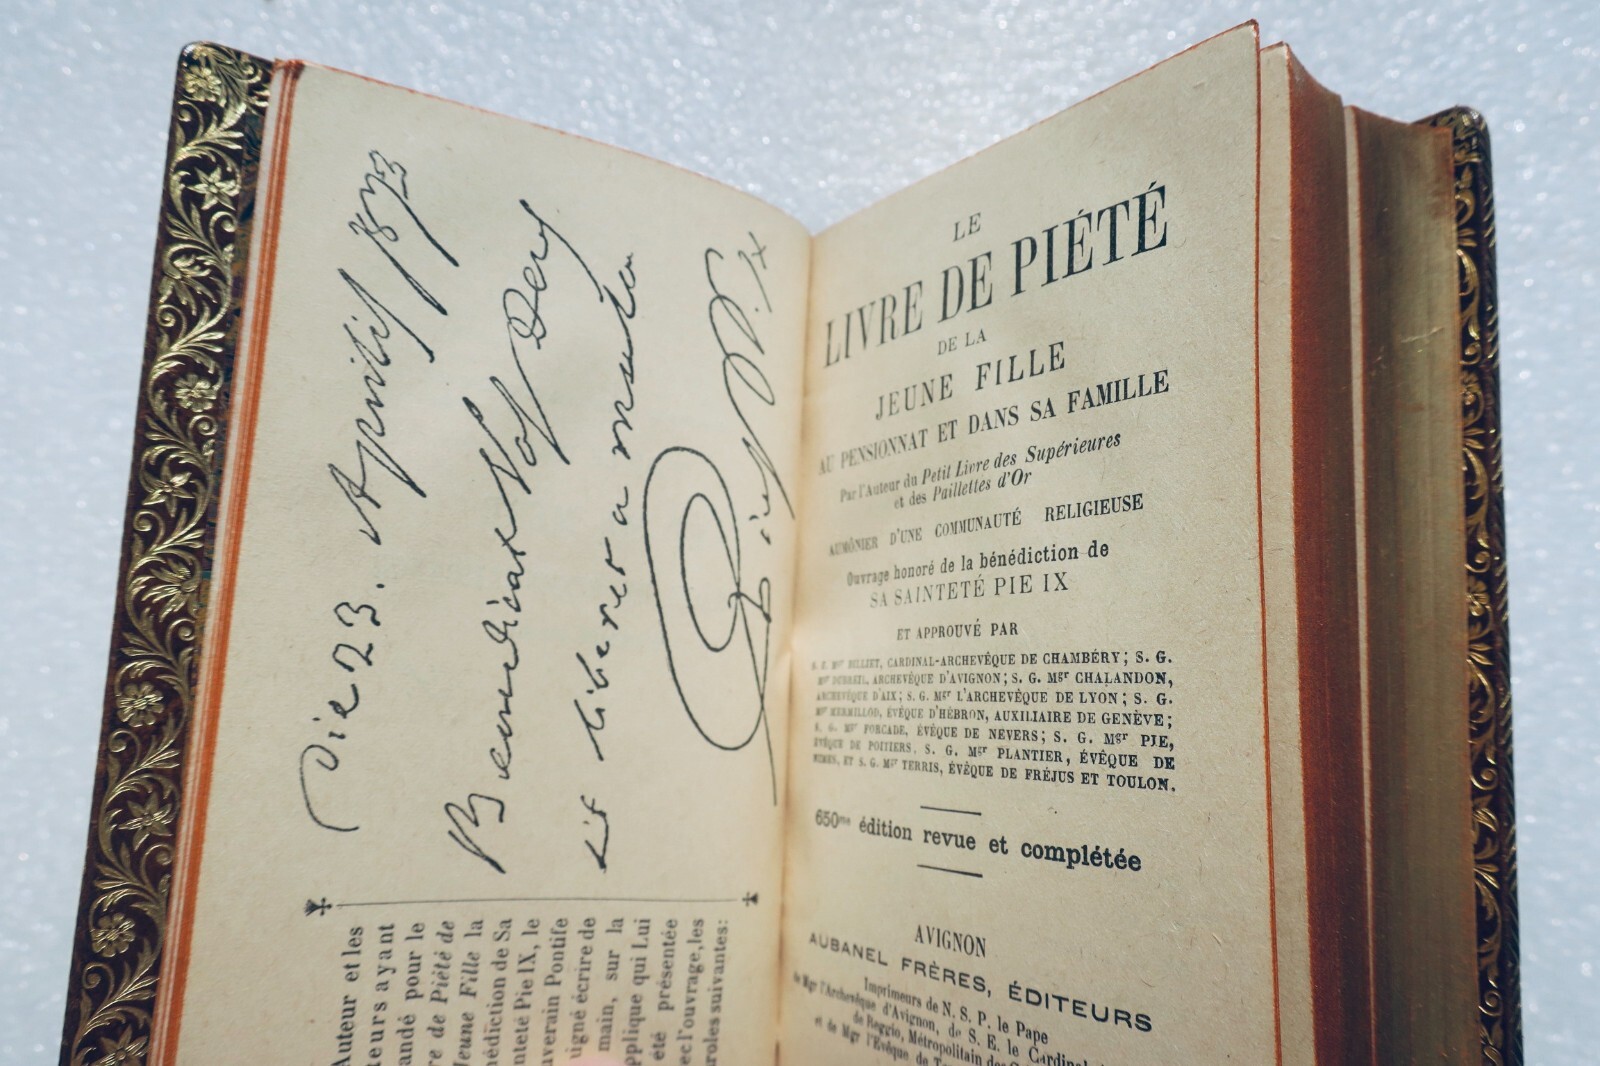 Die 23. Aprilis 1873
Benedicat Vos Deus
sit liber et a
Pius P.P. IX
Auteur et les
teurs ayant
andé pour le
re de Piété de
Jeune Fille la
nédiction de Sa
nteté Pie IX, le
uverain Pontife
igné écrire de
main, sur la
pplique qui Lui
été présentée
ec l'ouvrage, les
aroles suivantes:
LE
LIVRE DE PIÉTÉ
DE LA
JEUNE FILLE
AU PENSIONNAT ET DANS SA FAMILLE
Par l'Auteur du Petit Livre des Supérieures
et des Paillettes d'Or
AUMÔNIER D'UNE COMMUNAUTÉ RELIGIEUSE
Ouvrage honoré de la bénédiction de
SA SAINTETÉ PIE IX
ET APPROUVÉ PAR
S. E. Mgr BILLIET, CARDINAL-ARCHEVÊQUE DE CHAMBÉRY; S. G.
Mgr DUBREIL, ARCHEVÊQUE D'AVIGNON; S. G. Mgr CHALANDON,
ARCHEVÊQUE D'AIX; S. G. Mgr L'ARCHEVÊQUE DE LYON; S. G.
Mgr MERMILLOD, ÉVÊQUE D'HÉBRON, AUXILIAIRE DE GENÈVE;
S. G. Mgr FORCADE, ÉVÊQUE DE NEVERS; S. G. Mgr PIE,
ÉVÊQUE DE POITIERS, S. G. Mgr PLANTIER, ÉVÊQUE DE
NIMES, ET S. G. Mgr TERRIS, ÉVÊQUE DE FRÉJUS ET TOULON.
650me édition revue et complétée
AVIGNON
AUBANEL FRÈRES, ÉDITEURS
Imprimeurs de N. S. P. le Pape
de Mgr l'Archevêque d'Avignon, de S. E. le Cardinal
de Reggio, Métropolitain des
et de Mgr l'Evêque de